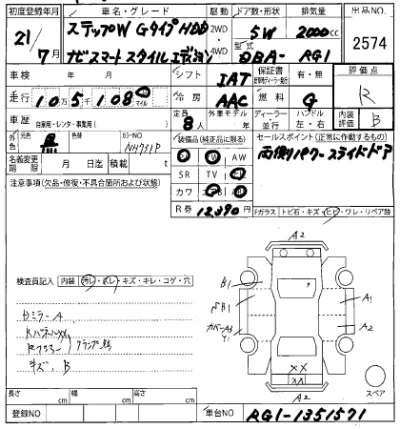 初度登録年月 車名・グレード 駆動 ドア数・形状 排気量 出品NO.
21/7月 ステップW GタイプHDD 2WD 5W 2000cc 2574
ナビスマートスタイルエディション 4WD 型式 DBA- RG1
車検 年 月 シフト IAT 保証書 有・無 評価点
走行 105,108 マイル 冷房 AAC 燃料 G R
車歴 自家用・レンタ・事業用( ) 定員 8人 外車モデル 年 ディーラー 並行 ハンドル 左・右 内装評価 B
外色 黒 色替 カラーNO NH731P 装備品(純正品に限る) セールスポイント(正常に作動するもの)
AW 両側パワースライドドア
名義変更期限 月 日迄 積載 t SR TV
注意事項(欠品・修復・不具合箇所および状態) カワ
R券 12390円
Fガラス トビ石・キズ・ヒビ・ワレ・リペア跡
A2
検査員記入 内装 汚レ・ボレ・キズ・キレ・コゲ・穴
B1
A1
A2
ミラーA
キズ、B
XX
A2
スペア
長さ cm 幅 cm 高さ cm
登録NO 車台NO RG1-1351571